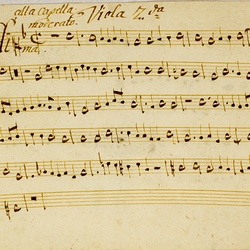 alla Capella
moderato. Viola 2.da
ma.